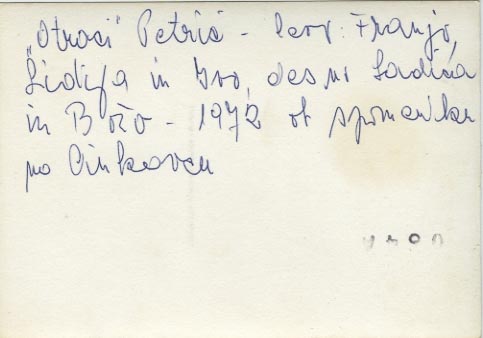 „Otroci" Petrić - levo: Franjo,
Lidija in Ivo, desno Ladica
in Božo - 1972 ob spomeniku
na Cinkovcu